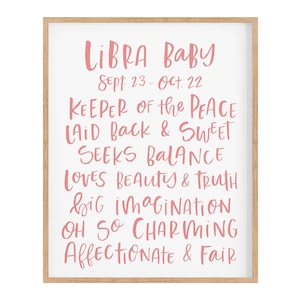 LiBRA BABY
SEPT 23 - OCT. 22
KEEPER OF the PEACE
LAID BACK & SWEET
SEEKS BALANCE
LOVES BEAUTY & TRUTH
BIG IMAGINATION
OH SO CHARMING
AFFECTIONATE & FAIR